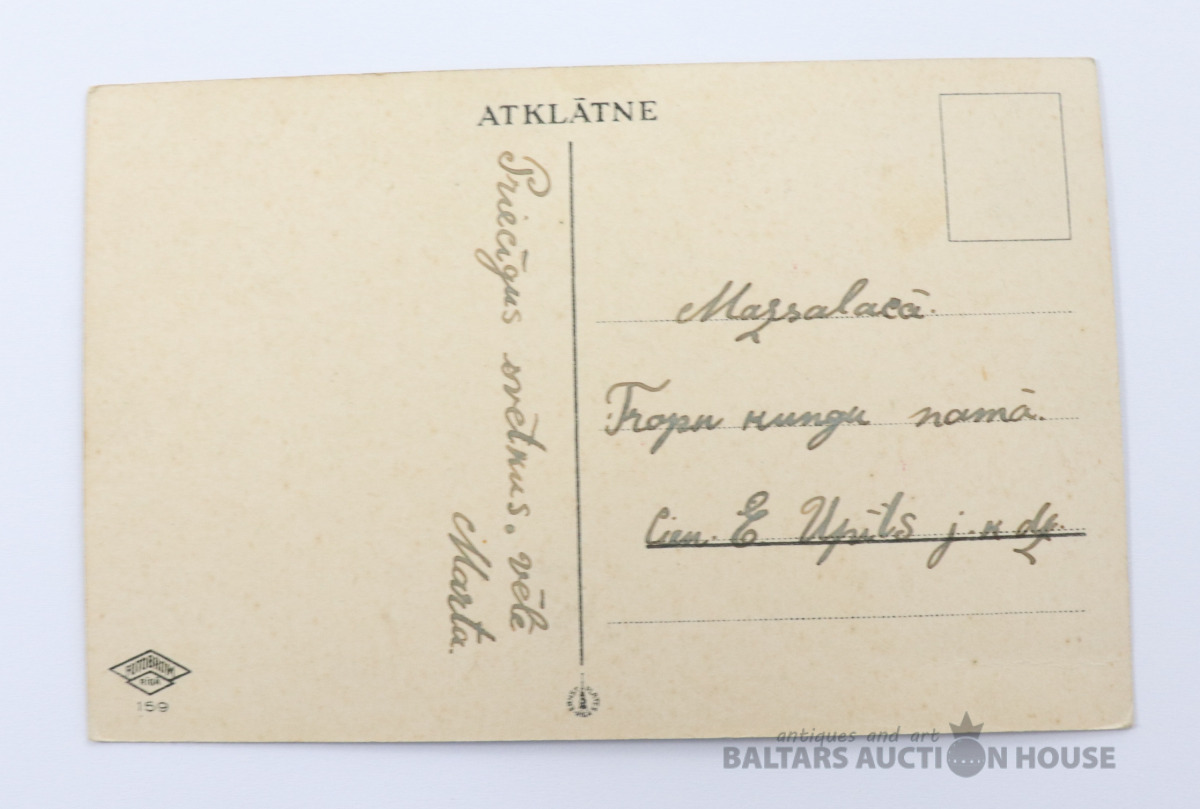 ATKLĀTNE
Priecīgus svētkus. vēlē
Marta.
Mazsalacā.
Tropu kungu namā.
Cien. E Upīts j. k dz.
RĪGĀ
159
antiques and art
BALTARS AUCTION HOUSE